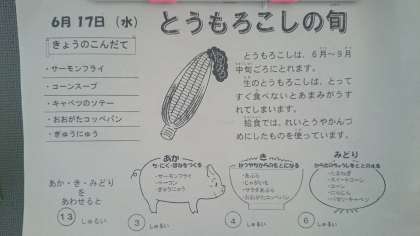 6月17日（水）
とうもろこしの旬
きょうのこんだて
・サーモンフライ
・コーンスープ
・キャベツのソテー
・おおがたコッペパン
・ぎゅうにゅう
とうもろこしは、6月～9月
中旬ごろにとれます。
生のとうもろこしは、とって
すぐ食べないとあまみがうす
れてしまいます。
給食では、れいとうやかんづ
めにしたものを使っています。
あか・き・みどり
を
あわせると
13 しゅるい
あか
ち・にく・ほねをつくる
・サーモンフライ
・ベーコン
・ぎゅうにゅう
3 しゅるい
き
・あぶら
・じゃがいも
・サラダあぶら
・おおがたコッペパン
4 しゅるい
みどり
・たまねぎ
・スイートコーン
・コーン
・にんじん
・キャベツ
6 しゅるい